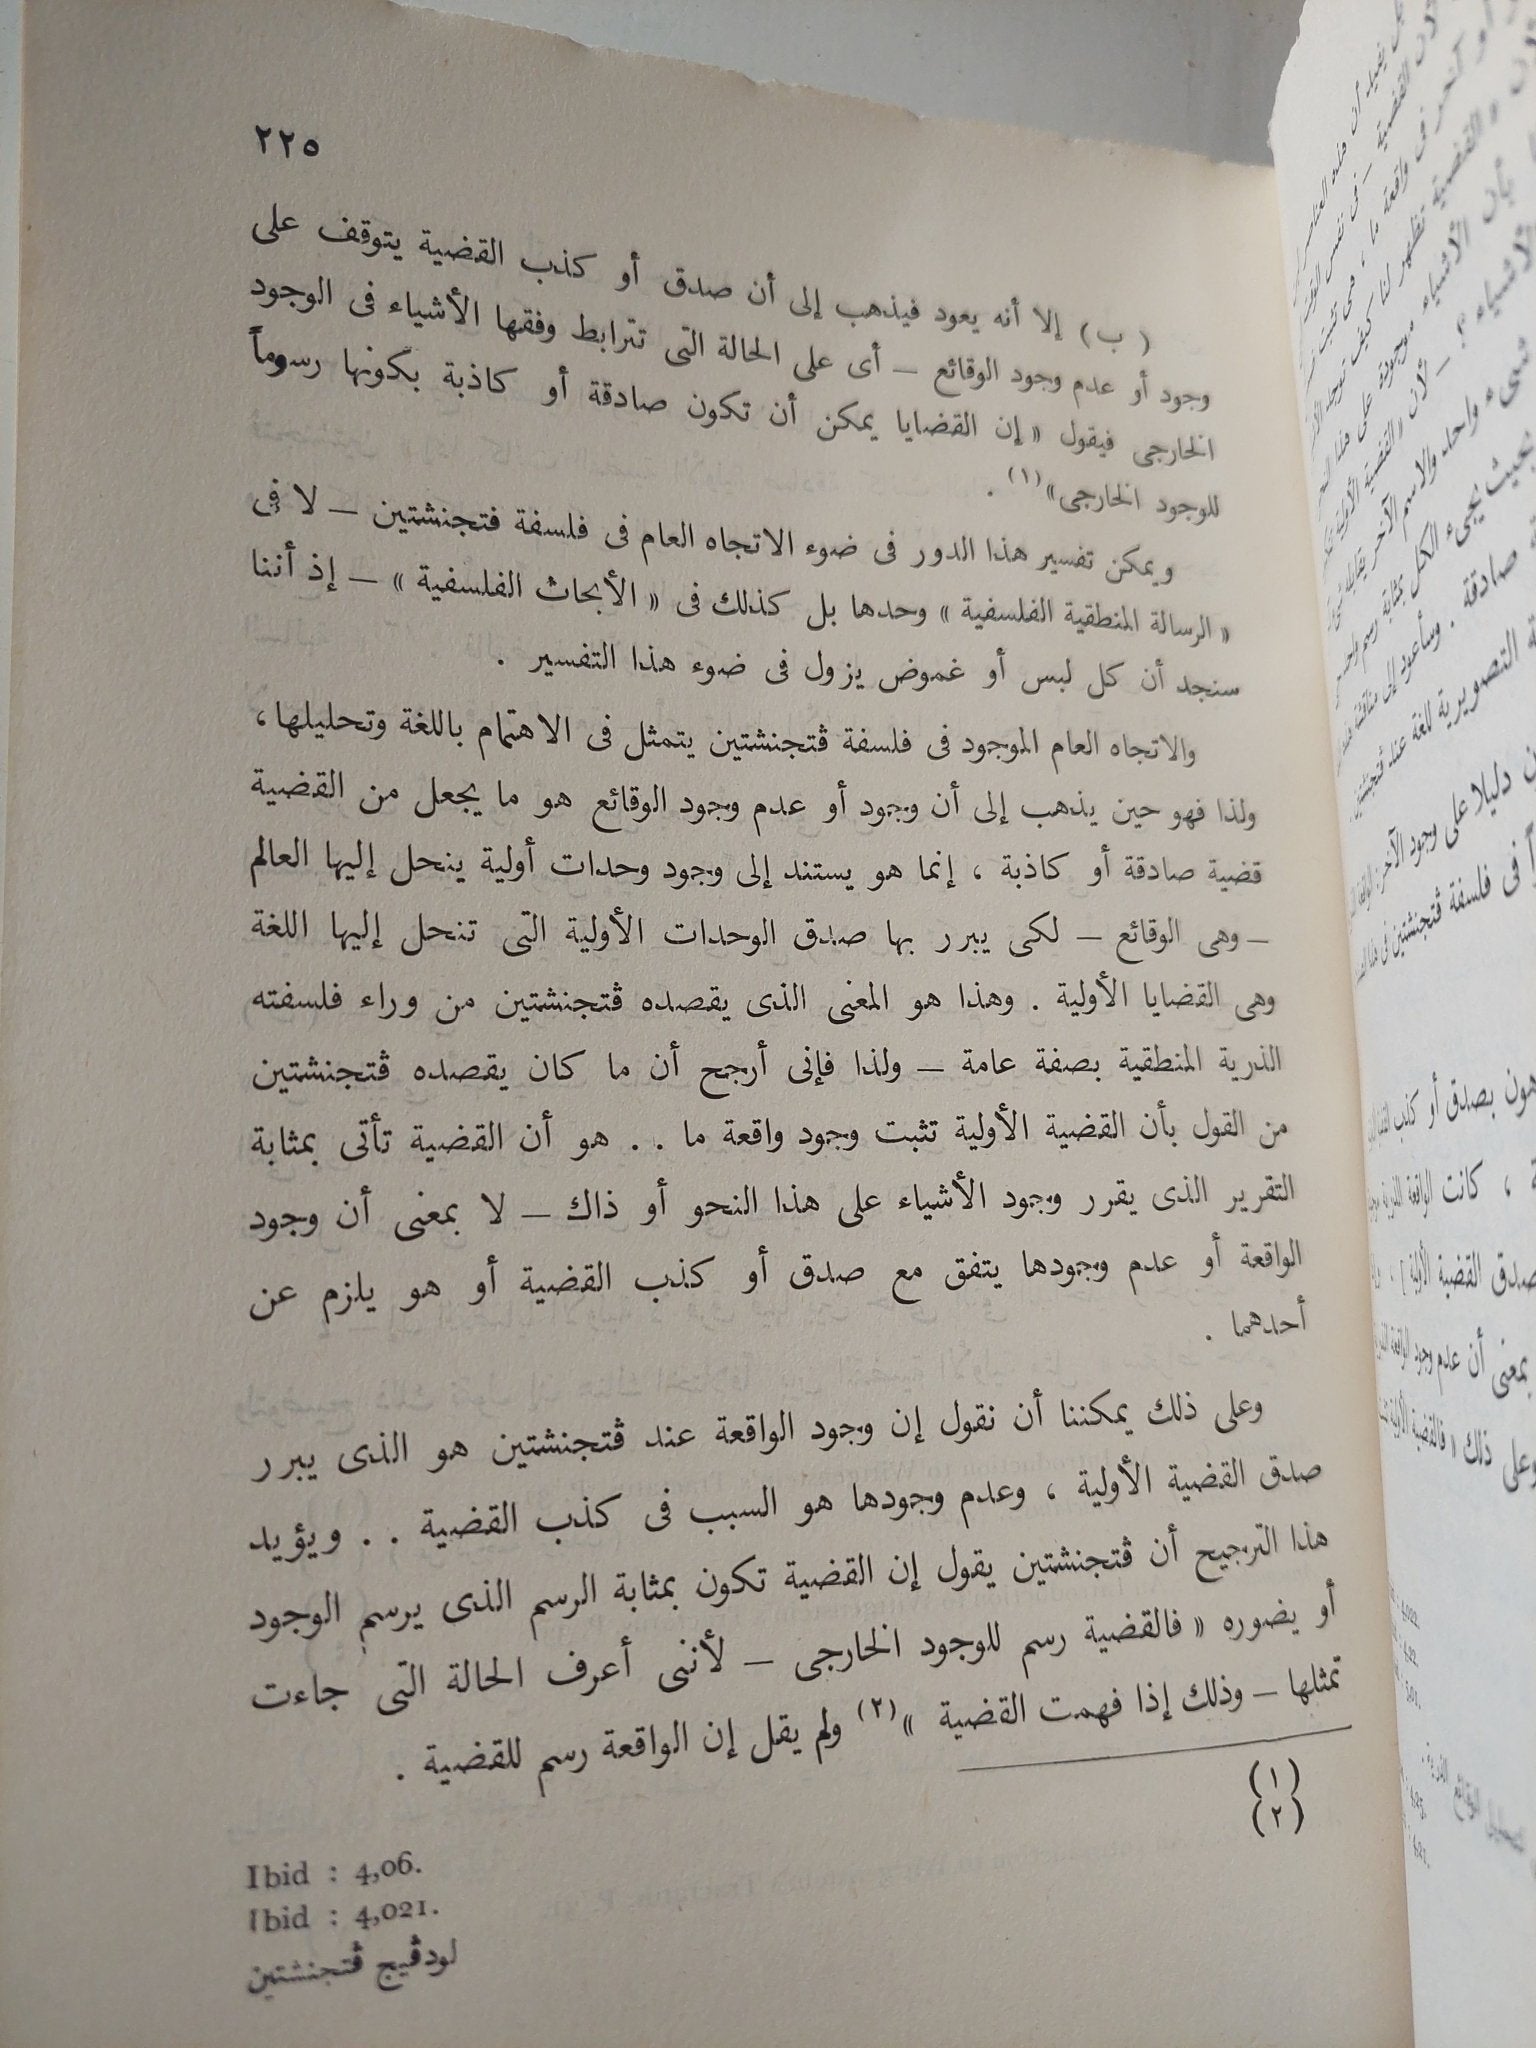 ٢٢٥
( ب ) إلا أنه يعود فيذهب إلى أن صدق أو كذب القضية يتوقف على
وجود أو عدم وجود الوقائع – أى على الحالة التى تترابط وفقها الأشياء فى الوجود
الخارجى فيقول « إن القضايا يمكن أن تكون صادقة أو كاذبة بكونها رسوماً
للوجود الخارجى»(١) .
ويمكن تفسير هذا الدور فى ضوء الاتجاه العام فى فلسفة فتجنشتين – لا فى
« الرسالة المنطقية الفلسفية » وحدها بل كذلك فى « الأبحاث الفلسفية » – إذ أننا
سنجد أن كل لبس أو غموض يزول فى ضوء هذا التفسير .
والاتجاه العام الموجود فى فلسفة ڤتجنشتين يتمثل فى الاهتمام باللغة وتحليلها،
ولذا فهو حين يذهب إلى أن وجود أو عدم وجود الوقائع هو ما يجعل من القضية
قضية صادقة أو كاذبة ، إنما هو يستند إلى وجود وحدات أولية ينحل إليها العالم
– وهى الوقائع – لكى يبرر بها صدق الوحدات الأولية التى تنحل إليها اللغة
وهى القضايا الأولية . وهذا هو المعنى الذى يقصده ڤتجنشتين من وراء فلسفته
الذرية المنطقية بصفة عامة – ولذا فإنى أرجح أن ما كان يقصده ڤتجنشتين
من القول بأن القضية الأولية تثبت وجود واقعة ما . . هو أن القضية تأتى بمثابة
التقرير الذى يقرر وجود الأشياء على هذا النحو أو ذاك – لا بمعنى أن وجود
الواقعة أو عدم وجودها يتفق مع صدق أو كذب القضية أو هو يلزم عن
أحدهما .
وعلى ذلك يمكننا أن نقول إن وجود الواقعة عند ڤتجنشتين هو الذى يبرر
صدق القضية الأولية ، وعدم وجودها هو السبب فى كذب القضية . . ويؤيد
هذا الترجيح أن ڤتجنشتين يقول إن القضية تكون بمثابة الرسم الذى يرسم الوجود
أو يضوره « فالقضية رسم للوجود الخارجى – لأننى أعرف الحالة التى جاءت
تمثلها – وذلك إذا فهمت القضية »(٢) ولم يقل إن الواقعة رسم للقضية .
(١) Ibid : 4,06.
(٢) Ibid : 4,021.
لودڤيج ڤتجنشتين